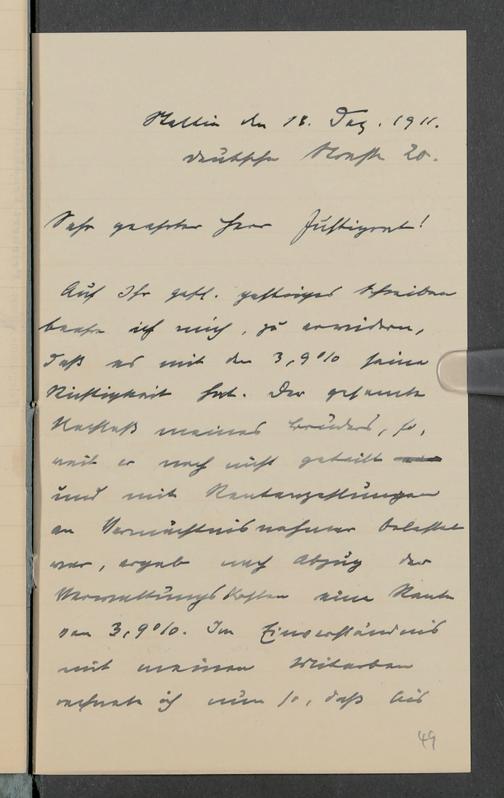 Stettin den 18. Dez. 1911.
Deutsche Straße 20.
Sehr geehrter Herr Justizrat!
Auf Ihr gefl. gestriges Schreiben
beehre ich mich, zu erwidern,
daß es mit den 3,9% seine
Richtigkeit hat. Der gesamte
Nachlaß meines Bruders, so,
weit er noch nicht geteilt
und mit Rentenzahlungen
an Vermächtnisnehmer belastet
war, ergab nach Abzug der
Verwaltungskosten eine Rente
von 3,9%. Im Einverständnis
mit meinen Miterben
rechnete ich nun so, daß bis
49